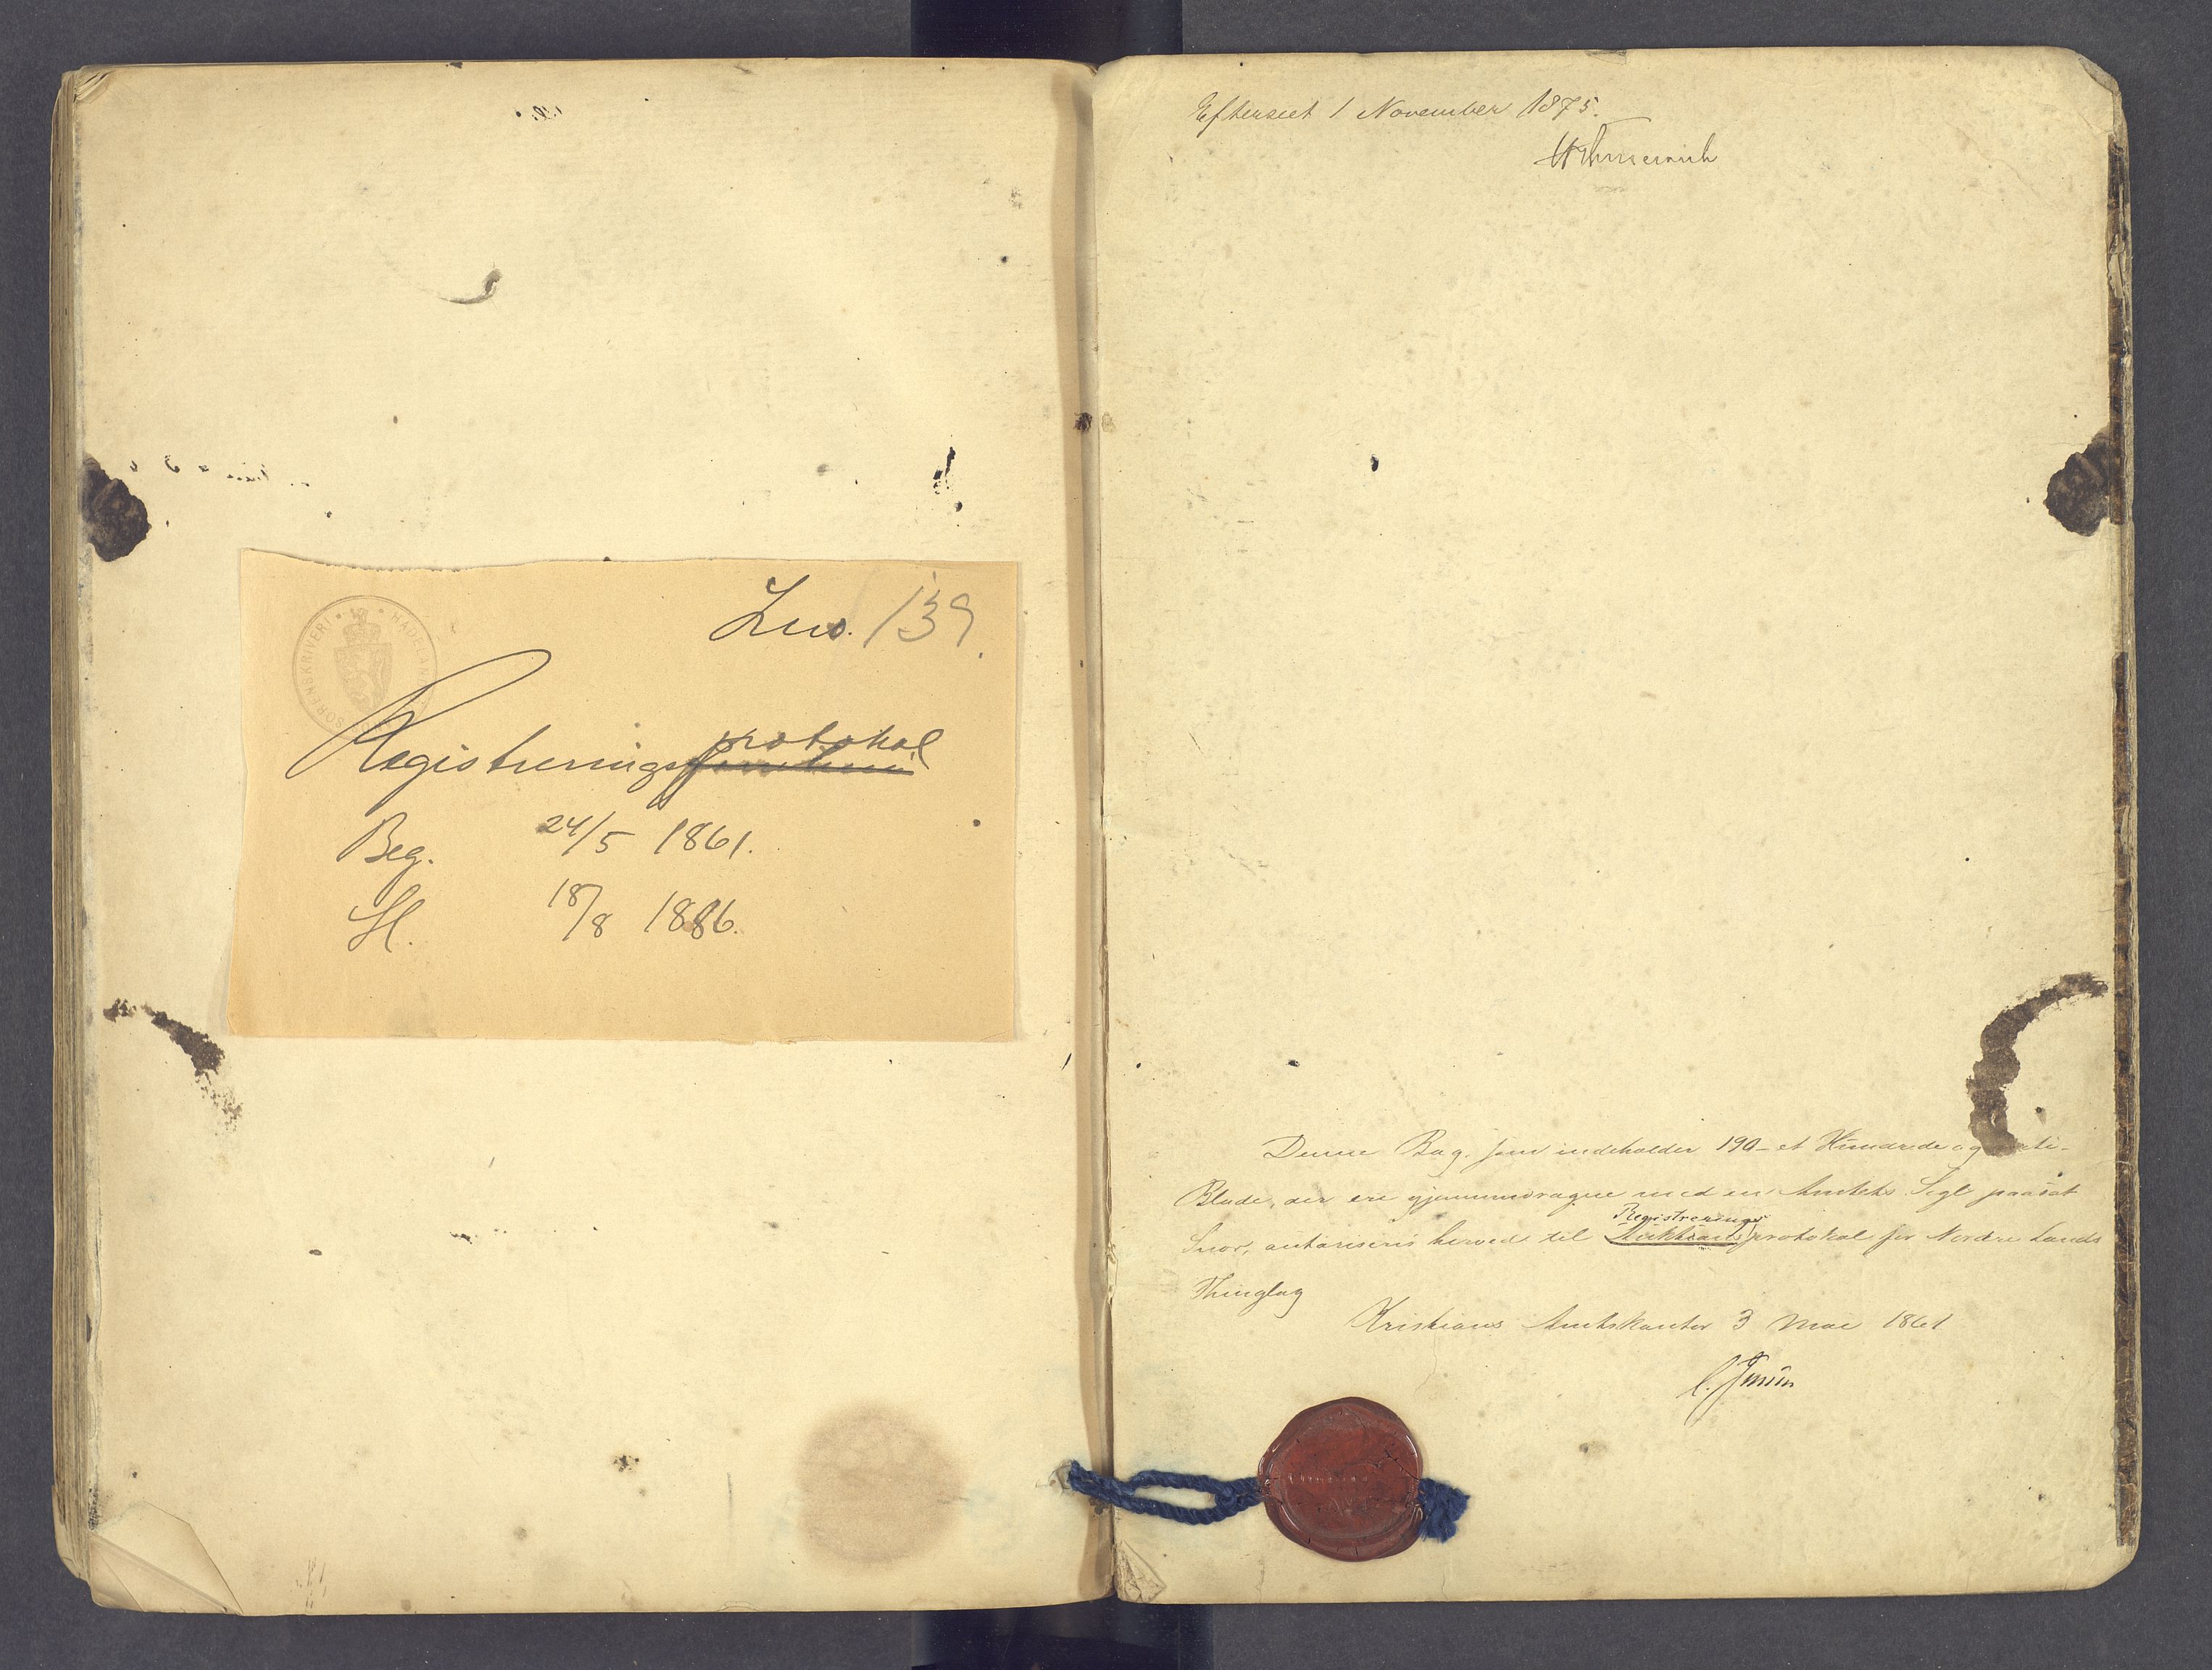 HADELAND SORENSKRIVERI
Lnr. 139.
Registreringsprotokol
Beg. 24/5 1861.
Sl. 18/8 1886.
Efterseet 1 November 1875.
Denne Bog, som indeholder 190 - et Hundrede og
Blade, der ere gjennemdragne med en Amtets Segl paasat
Snor, autoriseres herved til Registrerings Auktions protokol for Nordre Lands
Thinglag
Kristians Amtskontor 3 Mai 1861